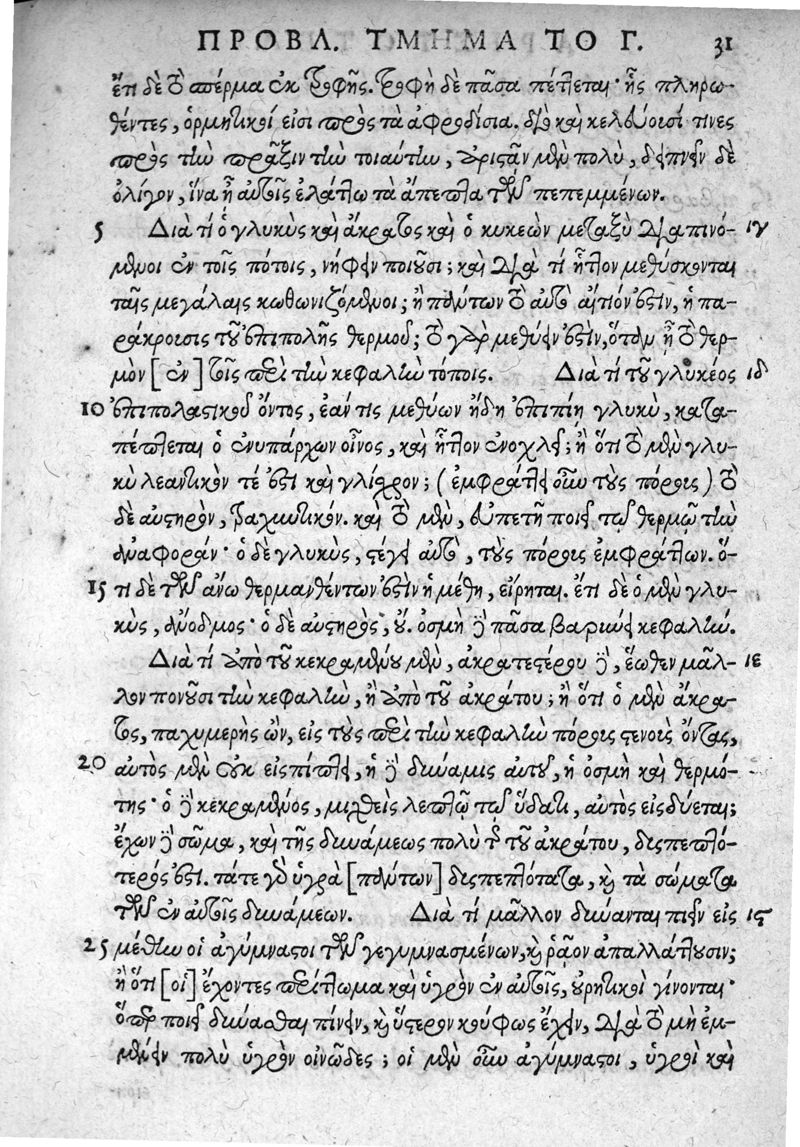 ΠΡΟΒΛ. ΤΜΗΜΑ ΤΟ Γ. 31
ἔτι δὲ τὸ σπέρμα ἐκ τροφῆς. τροφὴ δὲ πᾶσα πέττεται· ἧς πληρω-
θέντες, ὁρμητικοί εἰσι πρὸς τὰ ἀφροδίσια. διὸ καὶ κελεύουσί τινες
πρὸς τὴν πρᾶξιν τὴν τοιαύτην, ἀριστᾶν μὲν πολὺ, δειπνεῖν δὲ
ὀλίγον, ἵνα ᾖ αὐτοῖς ἐλάττω τὰ ἄπεπτα τῶν πεπεμμένων.
5 Διὰ τί ὁ γλυκὺς καὶ ἄκρατος καὶ ὁ κυκεὼν μεταξὺ διαπινό- ιγ
μενοι ἐν τοῖς πότοις, νήφειν ποιοῦσι; καὶ διὰ τί ἧττον μεθύσκονται
ταῖς μεγάλαις κωθωνιζόμενοι; ἢ πάντων τὸ αὐτὸ αἴτιόν ἐστιν, ἡ πα-
ράκρουσις τοῦ ἐπιπολῆς θερμοῦ; τὸ γὰρ μεθύειν ἐστὶν, ὅταν ᾖ τὸ θερ-
μὸν [ἐν] τοῖς περὶ τὴν κεφαλὴν τόποις. Διὰ τί τοῦ γλυκέος ιδ
10 ἐπιπολαστικοῦ ὄντος, ἐάν τις μεθύων ἤδη ἐπιπίῃ γλυκὺ, κατα-
πέττεται ὁ ἐνυπάρχων οἶνος, καὶ ἧττον ἐνοχλεῖ; ἢ ὅτι τὸ μὲν γλυ-
κὺ λεαντικόν τέ ἐστι καὶ γλίσχρον; (ἐμφράττει οὖν τοὺς πόρους) τὸ
δὲ αὐστηρὸν, τραχυντικόν. καὶ τὸ μὲν, εὐπετῆ ποιεῖ τῷ θερμῷ τὴν
ἀναφοράν· ὁ δὲ γλυκὺς, στέγει αὐτὸ, τοὺς πόρους ἐμφράττων. ὅ-
15 τι δὲ τῶν ἄνω θερμανθέντων ἐστὶν ἡ μέθη, εἴρηται. ἔτι δὲ ὁ μὲν γλυ-
κὺς, ἄνοδμος· ὁ δὲ αὐστηρὸς, οὔ. ὀσμὴ δὲ πᾶσα βαρύνει κεφαλήν.
Διὰ τί ἀπὸ τοῦ κεκραμένου μὲν, ἀκρατεστέρου δὲ, ἕωθεν μᾶλ- ιε
λον πονοῦσι τὴν κεφαλὴν, ἢ ἀπὸ τοῦ ἀκράτου; ἢ ὅτι ὁ μὲν ἄκρα-
τος, παχυμερὴς ὢν, εἰς τοὺς περὶ τὴν κεφαλὴν πόρους στενοὺς ὄντας,
20 αὐτὸς μὲν οὐκ εἰσπίπτει, ἡ δὲ δύναμις αὐτοῦ, ἡ ὀσμὴ καὶ θερμό-
της· ὁ δὲ κεκραμένος, μιχθεὶς λεπτῷ τῷ ὕδατι, αὐτὸς εἰσδύεται;
ἔχων δὲ σῶμα, καὶ τῆς δυνάμεως πολὺ τῆς τοῦ ἀκράτου, δυσπεπτό-
τερός ἐστι. τά τε γὰρ ὑγρὰ [πάντων] δυσπεπτότατα, καὶ τὰ σώματα
τῶν ἐν αὐτοῖς δυνάμεων. Διὰ τί μᾶλλον δύνανται πιεῖν εἰς ις
25 μέθην οἱ ἀγύμναστοι τῶν γεγυμνασμένων, καὶ ῥᾷον ἀπαλλάττουσιν;
ἢ ὅτι [οἱ] ἔχοντες περίττωμα καὶ ὑγρὸν ἐν αὐτοῖς, οὐρητικοὶ γίνονται·
ὅπερ ποιεῖ δύνασθαι πίνειν, καὶ ὕστερον κούφως ἔχειν, διὰ τὸ μὴ ἐμ-
μένειν πολὺ ὑγρὸν οἰνῶδες; οἱ μὲν οὖν ἀγύμναστοι, ὑγροὶ καὶ